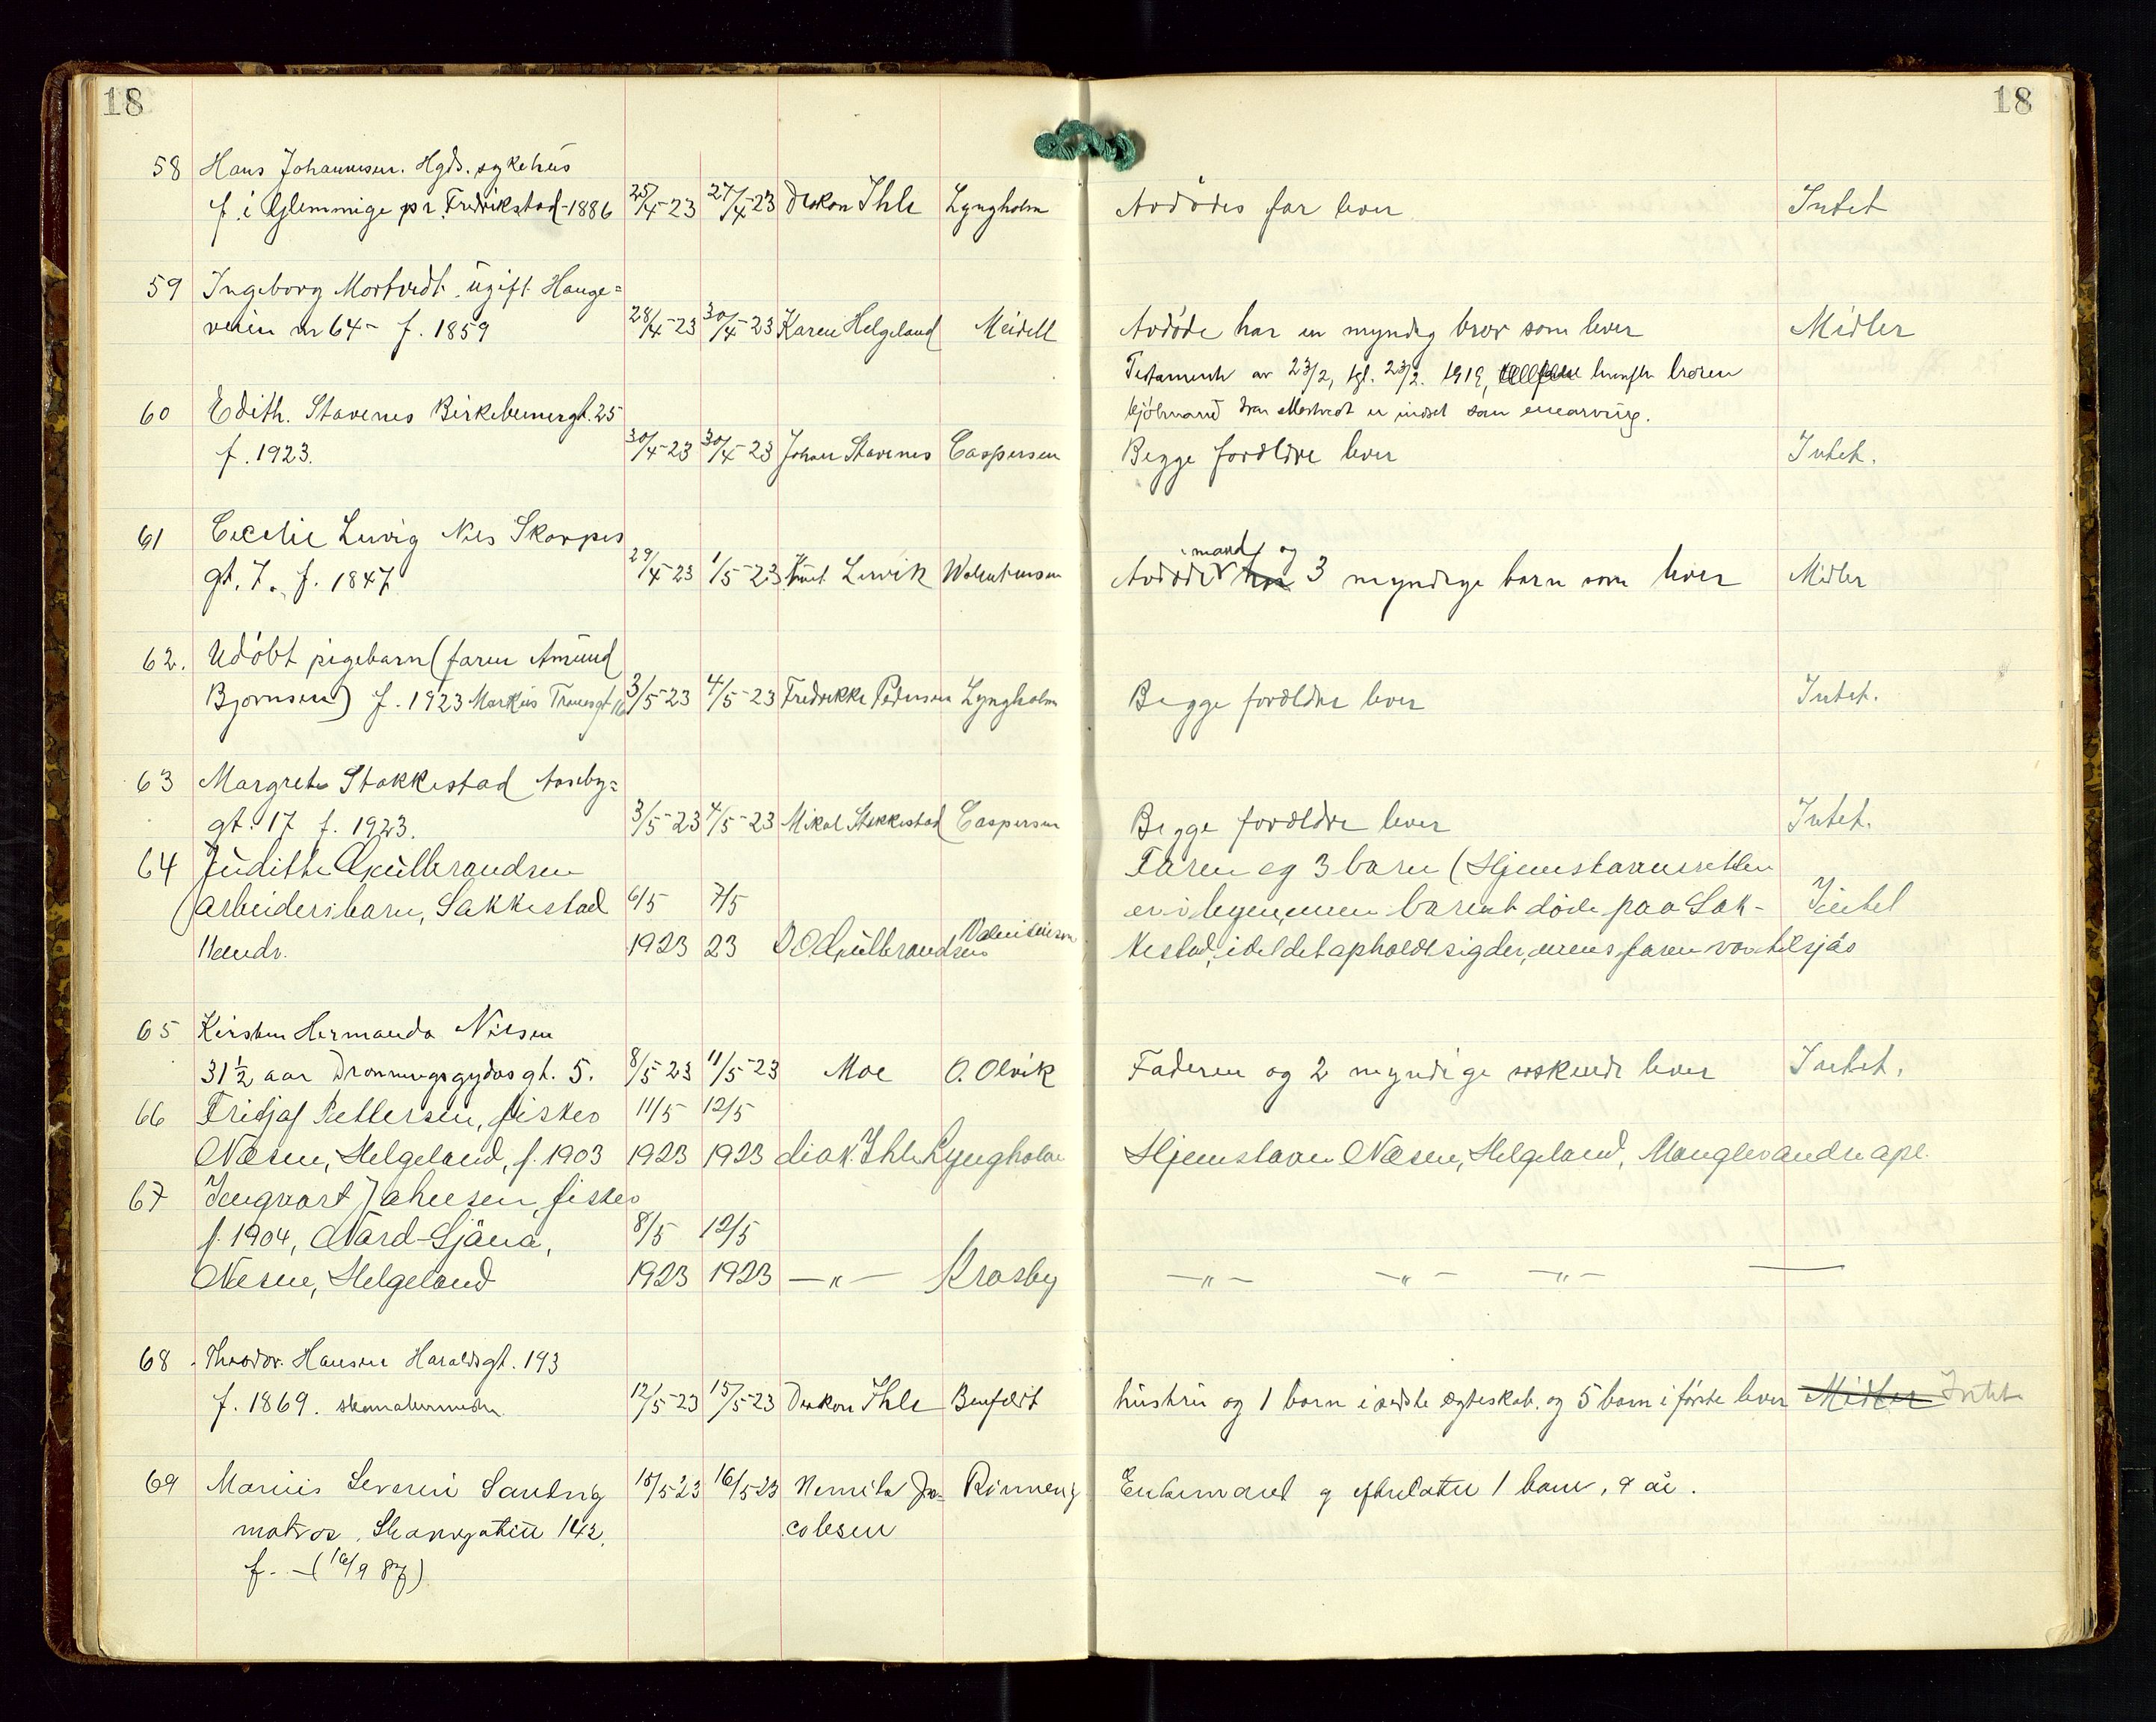 18
18
58 Hans Johannesen. Hgds. sykehus
f. i Glemminge pr. Fredrikstad - 1886 25/4-23 27/4-23 Diakon Ihle Lyngholm Avdødes far lever Intet
59 Ingeborg Mortvedt. ugift. Hauge=
veien nr 64 - f. 1859 28/4-23 30/4-23 Karen Helgeland Meidell Avdøde har en myndig bror som lever Midler
Testament av 23/2, tgl. 23/2. 1919, hvorefter broren
60 Edith. Stavenes Birkebeinergt. 25
er indsat som enearving.
f. 1923. 30/4-23 30/4-23 Johan Stavenes Caspersen Begge forældre lever Intet.
61 Cecelie Lervig Nils Skorpes
gt. 7. f. 1847 29/4-23 1/5-23 Knut. Lervik Walentinsen Avdøde har mand og 3 myndige barn som lever Midler
62. Udøbt pigebarn (faren Amund
Bjørnsen) f. 1923 Markus Tranesgt 16 3/5-23 4/5-23 Fredrikke Pedersen Lyngholm Begge forældre lever Intet.
63 Margrete Stakkestad Aasby=
gt. 17 f. 1923. 3/5-23 4/5-23 Mikal Stakkestad Caspersen Begge forældre lever Intet.
64 Judithe Gulbrandsen Faren og 3 barn (Hjemstavnsretten
(arbeidersbarn, Sakkestad 6/5 7/5 er i byen, men barnet døde paa Sak- Intet
1923 23 O Gulbrandsen Valentinsen kestad, idet det opholdt sig der, mens faren var tilsjøs
65 Kirsten Hermanda Nilsen
31½ aar Dronningsgydasgt. 5. 8/5 23 11/5-23 Moe O. Olvik Faderen og 2 myndige søskende lever Intet.
66 Fridjof Pettersen, fisker 11/5 12/5
Nesne, Helgeland, f. 1903 1923 1923 diak. Ihle Lyngholm Hjemstavn Nesne, Helgeland, Mangler andre opl.
67 Ingvart Johnsen, fisker
f. 1904, Nord-Sjona, 8/5 12/5
Nesne, Helgeland 1923 1923 —"— Krosby —"— —"— —"— —
68 Theodor Hansen Haraldsgt. 193
f. 1869. 12/5-23 15/5-23 Diakon Ihle Benfeldt hustru og 1 barn i sidste ægteskab og 5 barn i første lever Midler Intet
69 Marius Severin Sandvig 15/5 23 16/5-23 Jo- Rinnerg Enkemand og efterlater 1 barn, 9 år.
matros, Skaregaten 142. cobsen
f. - (16/9 87)